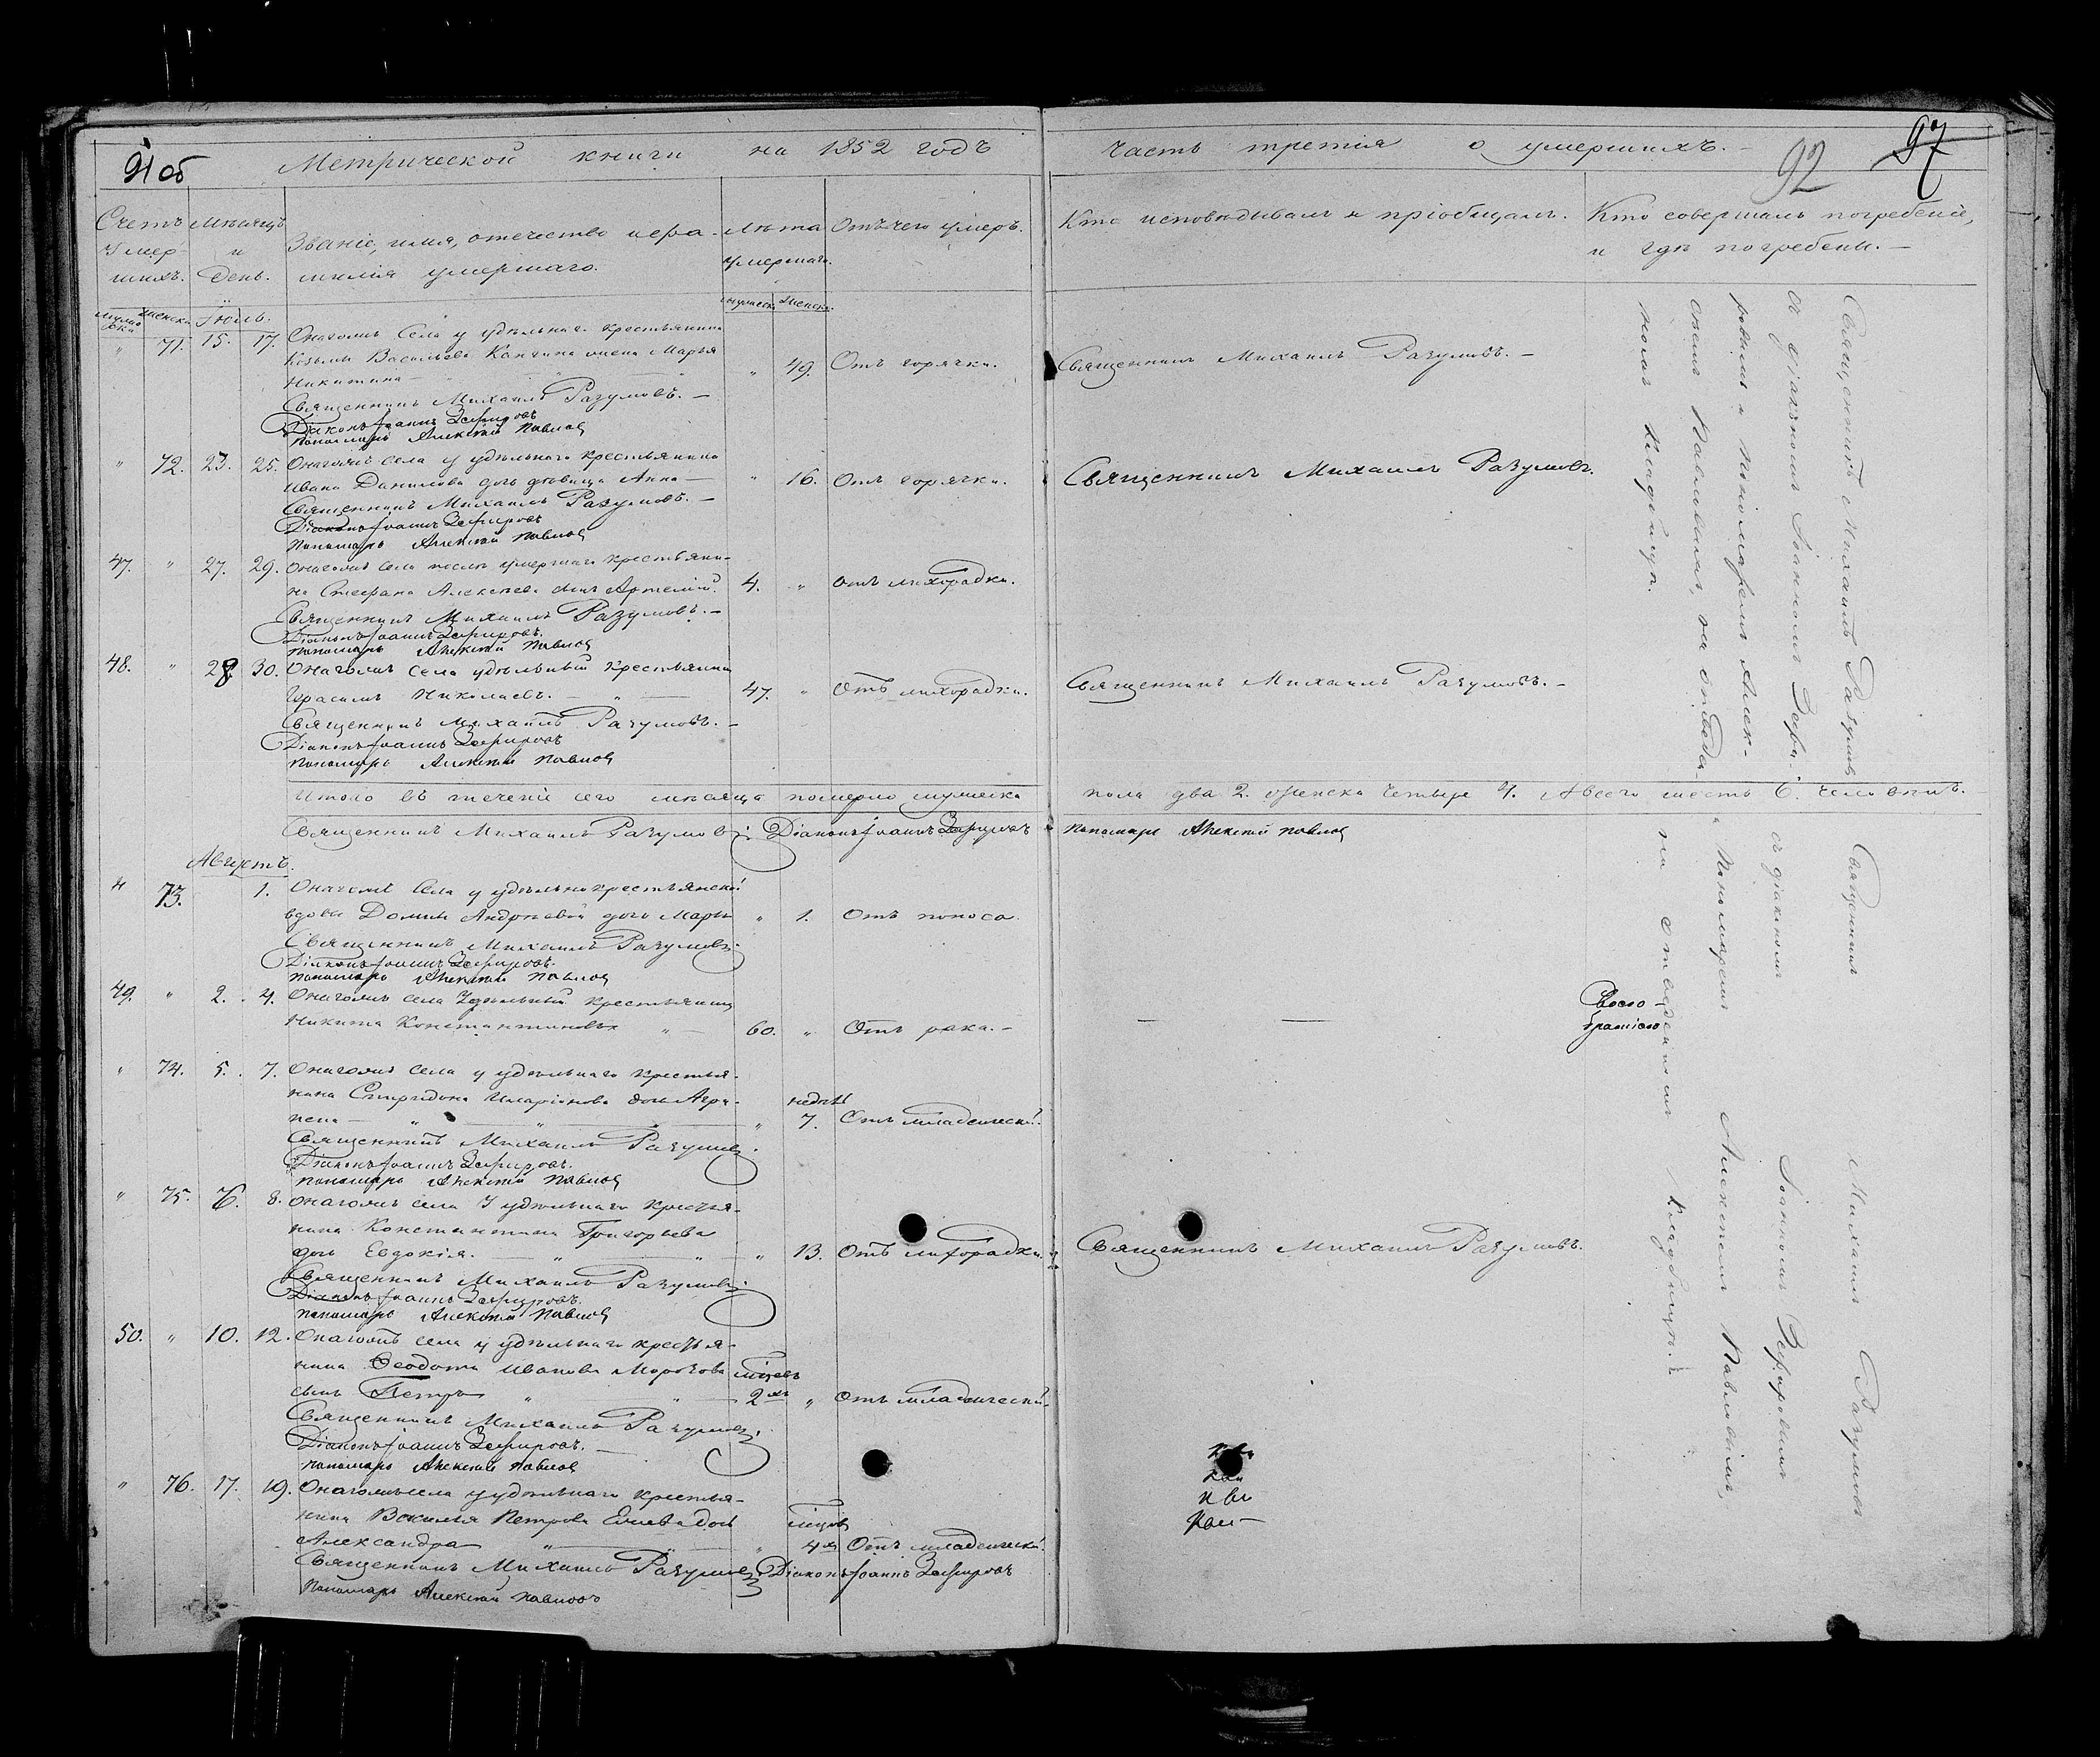 91 об
Метрической книги на 1852 годъ
часть третія о умершихъ.
92
97
Счетъ умершихъ.
Мѣсяцъ и день.
Званіе, имя, отечество и фамилія умершаго.
Лѣта умершаго.
Отъ чего умеръ.
Кто исповѣдывалъ и пріобщалъ.
Кто совершалъ погребеніе,
и гдѣ погребены.
Мужеска Женска
Іюль.
Мужеск. Женск.
" 71. 15. 17. Онагожъ Села у удѣльнаго крестьянина
Козьмы Васильева жена Марья
Никитина " 49. Отъ горячки. Священникъ Михаилъ Разумовъ.
Священникъ Михаилъ Разумовъ.
Діаконъ Іоаннъ Зефировъ
Пономарь Алексѣй Павловъ
" 72. 23. 25. Онагожъ села у удѣльнаго крестьянина
Ивана Данилова дочь девица Анна " 16. Отъ горячки. Священникъ Михаилъ Разумовъ.
Священникъ Михаилъ Разумовъ.
Діаконъ Іоаннъ Зефировъ
Пономарь Алексѣй Павловъ
47. " 27. 29. Онагожъ села послѣ умершаго крестьяни-
на Стефана Алексѣева сынъ Артемій. 4. " Отъ лихорадки.
Священникъ Михаилъ Разумовъ.
Діаконъ Іоаннъ Зефировъ.
Пономарь Алексѣй Павловъ
48. " 28. 30. Онагожъ села удѣльный крестьянинъ
Герасимъ Николаевъ. 47. " Отъ лихорадки. Священникъ Михаилъ Разумовъ.
Священникъ Михаилъ Разумовъ.
Діаконъ Іоаннъ Зефировъ
Пономарь Алексѣй Павловъ
Священникъ Михаилъ Разумовъ
съ діакономъ Іоанномъ Зефи-
ровымъ и пономаремъ Алек-
сѣемъ Павловымъ, на отведен-
номъ кладбищѣ.
Итого въ теченіе сего мѣсяца померло мужеска пола два 2. женска четыре 4. А всего шесть 6. человѣкъ.
Священникъ Михаилъ Разумовъ Діаконъ Іоаннъ Зефировъ Пономарь Алексѣй Павловъ
Августъ.
" 73. 1. Онагожъ Села у удѣльно крестьянской
вдовы Домны Андреевой дочь Марья " 1. Отъ поноса.
Священникъ Михаилъ Разумовъ
Діаконъ Іоаннъ Зефировъ.
Пономарь Алексѣй Павловъ
49. " 2. 4. Онагожъ села Удѣльный крестьянинъ
Никита Константиновъ 60. " Отъ рака.
" 74. 5. 7. Онагожъ Села у удѣльнаго крестья-
нина Спиридона Иларіонова дочь Агри-
пена " недѣль 7. Отъ младенческой.
Священникъ Михаилъ Разумовъ.
Діаконъ Іоаннъ Зефировъ.
Пономарь Алексѣй Павловъ
" 75. 6. 8. Онагожъ села У удѣльнаго крестья-
нина Константина Григорьева
дочь Евдокія. " 13. Отъ лихорадки. Священникъ Михаилъ Разумовъ.
Священникъ Михаилъ Разумовъ
Діаконъ Іоаннъ Зефировъ.
Пономарь Алексѣй Павловъ
50. " 10. 12. Онагожъ села у удѣльнаго крестья-
нина Ѳеодота Иванова Морозова
сынъ Петръ мѣсяцевъ 2хъ " Отъ младенческой.
Священникъ Михаилъ Разумовъ.
Діаконъ Іоаннъ Зефировъ.
Пономарь Алексѣй Павловъ
" 76. 17. 19. Онагожъ села у удѣльнаго крестья-
нина Василья Петрова дочь
Александра " 4хъ Отъ младенческой.
Священникъ Михаилъ Разумовъ Діаконъ Іоаннъ Зефировъ
Пономарь Алексѣй Павловъ
Священникъ Михаилъ Разумовъ
съ діакономъ Іоанномъ Зефировымъ
и пономаремъ Алексѣемъ Павловымъ,
на отведенномъ кладбищѣ.